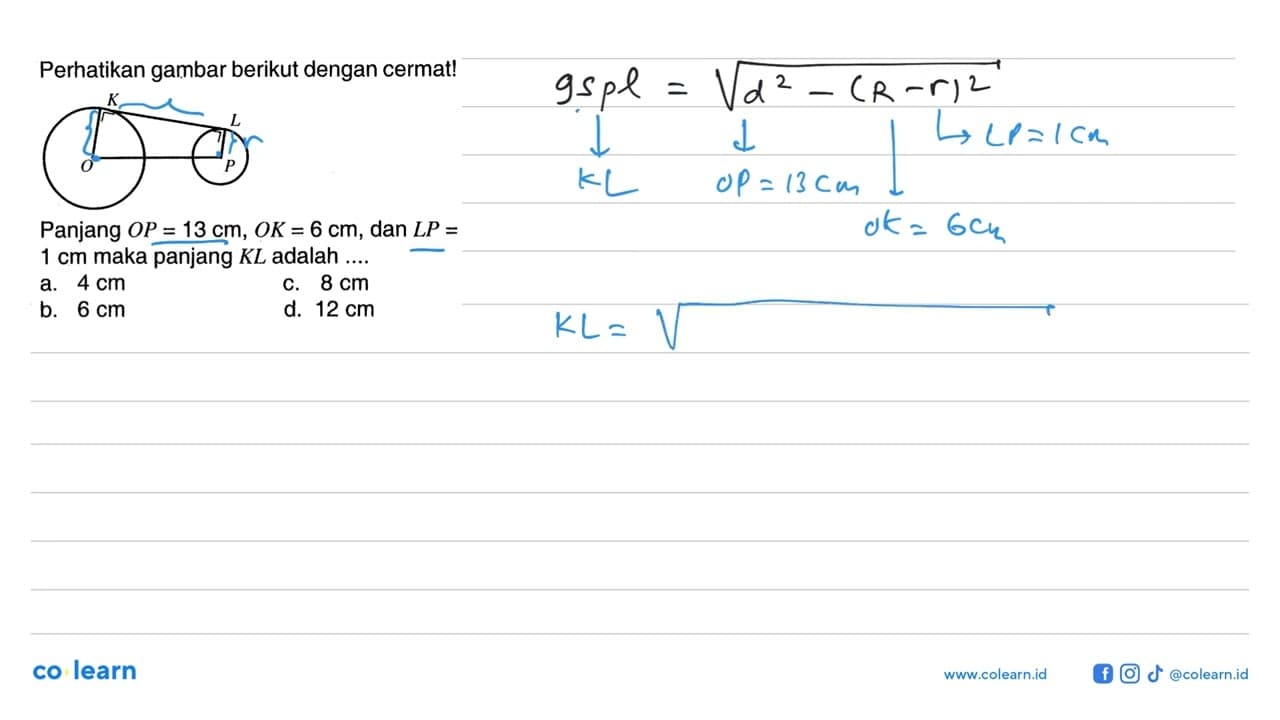 Perhatikan gambar berikut dengan cermat!
K
L
O
P
r
Panjang OP = 13 cm, OK = 6 cm, dan LP =
1 cm maka panjang KL adalah ....
a. 4 cm
c. 8 cm
b. 6 cm
d. 12 cm
gspl = √d² - (R-r)²
↓ ↓ ↳ LP = 1 cm
KL OP = 13 cm
OK = 6 cm
KL = √
co learn
www.colearn.id
@colearn.id